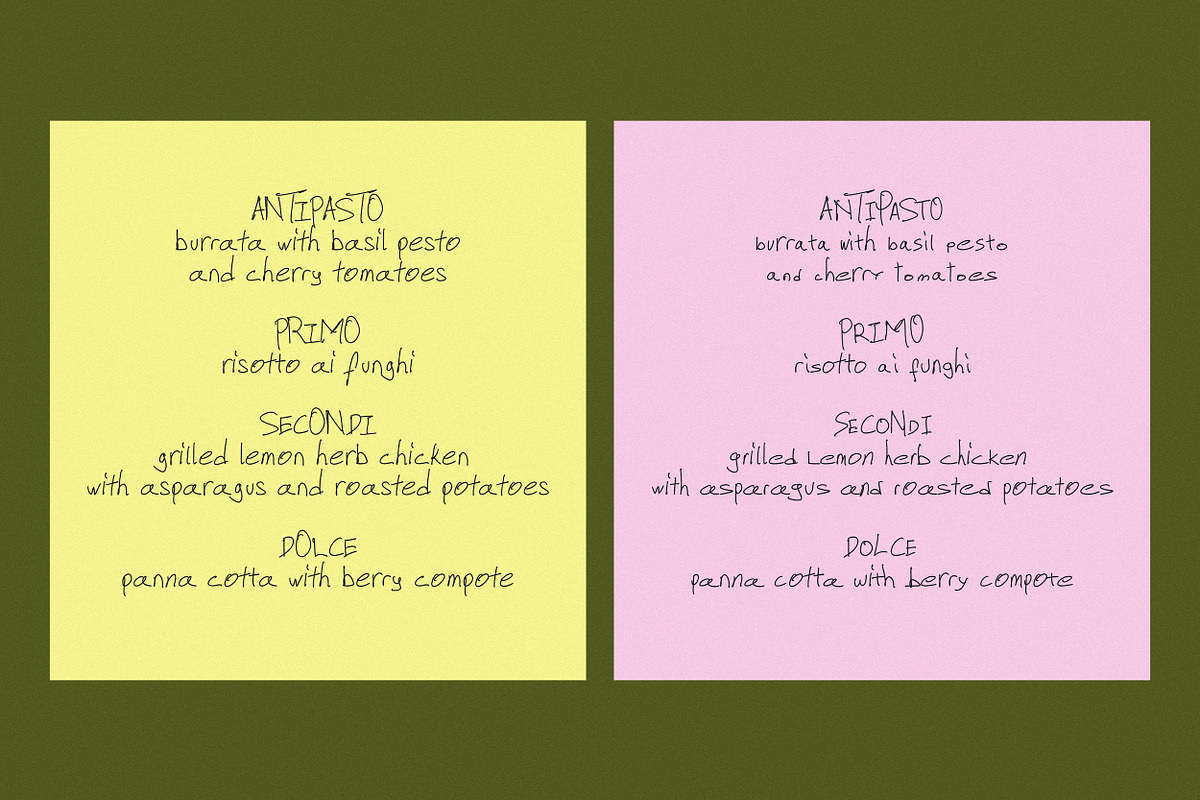 ANTIPASTO
burrata with basil pesto
and cherry tomatoes
PRIMO
risotto ai funghi
SECONDI
grilled lemon herb chicken
with asparagus and roasted potatoes
DOLCE
panna cotta with berry compote
ANTIPASTO
burrata with basil pesto
and cherry tomatoes
PRIMO
risotto ai funghi
SECONDI
grilled Lemon herb chicken
with asparagus and roasted potatoes
DOLCE
panna cotta with berry compote